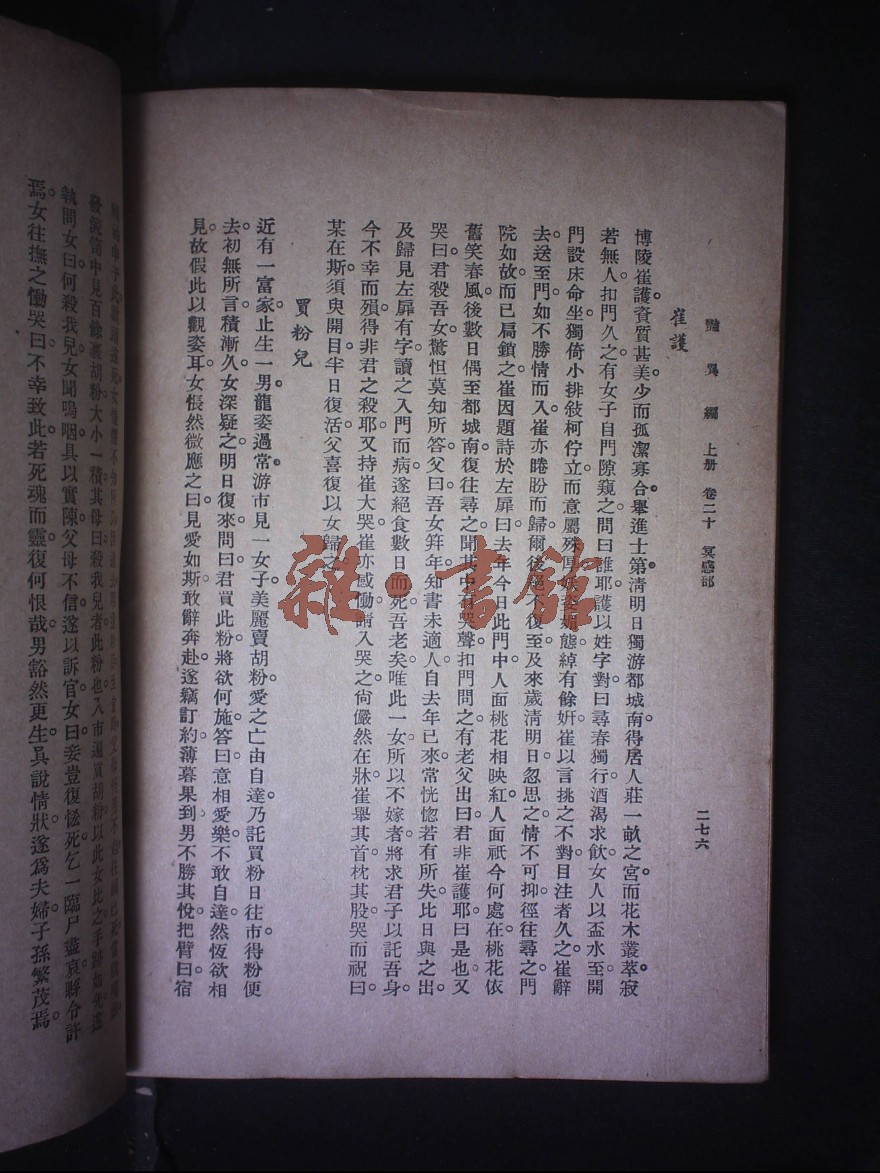 豔異編 上册 卷二十 冥感部
二七六
崔護
博陵崔護資質甚美少而孤潔寡合舉進士第清明日獨游都城南得居人莊一畝之宮而花木叢萃寂
若無人扣門久之有女子自門隙窺之問曰誰耶護以姓字對曰尋春獨行酒渴求飲女人以盃水至開
門設床命坐獨倚小排敍柯佇立而意屬殊厚妖姿媚態綽有餘姸崔以言挑之不對目注者久之崔辭
去送至門如不勝情而入崔亦睠盼而歸爾後絕不復至及來歲清明日忽思之情不可抑徑往尋之門
院如故而已扃鎖之崔因題詩於左扉曰去年今日此門中人面桃花相映紅人面祇今何處在桃花依
舊笑春風後數日偶至都城南復往尋之聞其中有哭聲扣門問之有老父出曰君非崔護耶曰是也又
哭曰君殺吾女驚怛莫知所答父曰吾女笄年知書未適人自去年已來常恍惚若有所失比日與之出
及歸見左扉有字讀之入門而病遂絕食數日而死吾老矣唯此一女所以不嫁者將求君子以託吾身
今不幸而殞得非君之殺耶又持崔大哭崔亦感慟請入哭之尙儼然在牀崔舉其首枕其股哭而祝曰
某在斯須臾開目半日復活父喜復以女歸之
買粉兒
近有一富家止生一男龍姿過常游市見一女子美麗賣胡粉愛之亡由自達乃託買粉日往市得粉便
去初無所言積漸久女深疑之明日復來問曰君買此粉將欲何施答曰意相愛樂不敢自達然恆欲相
見故假此以觀姿耳女悵然微應之曰見愛如斯敢辭奔赴遂竊訂約薄暮果到男不勝其悅把臂曰宿
發篋笥中見百餘裹胡粉大小一積其母曰殺我兒者此粉也入市遍買胡粉以此女比之手跡如先遂
執問女曰何殺我兒女聞嗚咽具以實陳父母不信遂以訴官女曰妾豈復恡死乞一臨尸盡哀縣令許
焉女往撫之慟哭曰不幸致此若死魂而靈復何恨哉男豁然更生具說情狀遂爲夫婦子孫繁茂焉
雜·書館